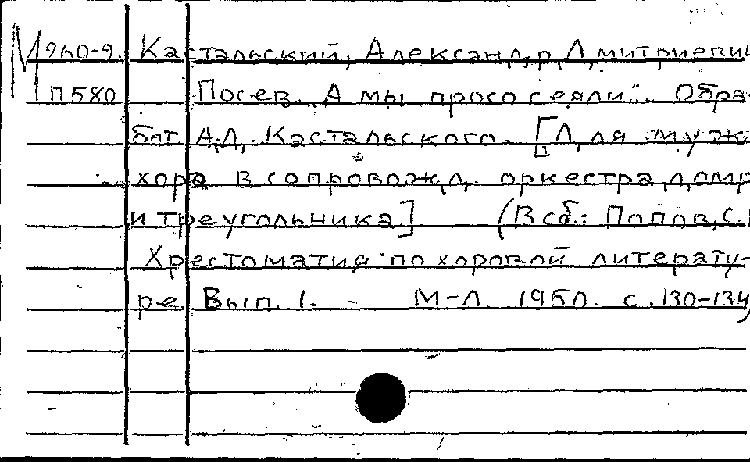 М 960-9 Кастальский, Александр Дмитриевич
П580 Посев „А мы просо сеяли". Обра-
бот. А.Д. Кастальского. [Для муж.
хора в сопровожд. оркестра, домр
и треугольника] (В сб.: Попов, С.
Хрестоматия по хоровой литерату-
ре. Вып. 1. - М-Л. 1950. с. 130-134)